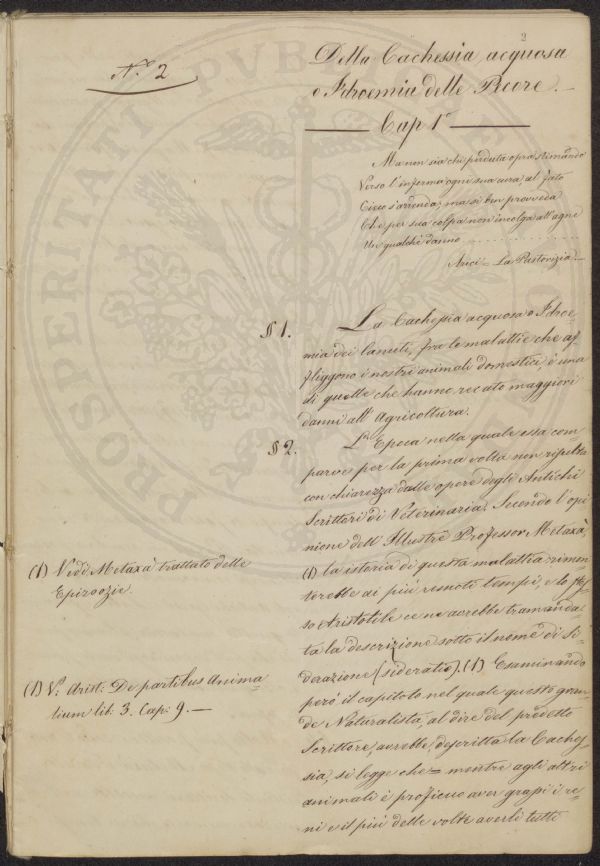 2
N.º 2
Della Cachessia acquosa
o Idroemia delle Pecore.
Cap 1º
Ma non sia che perduta opra stimando
Verso l'inferma ogni sua cura, al fato
Cieco s'arrenda, ma si ben provveda
Che per sua colpa non incolga all'agne
Un qualche danno
Arici = La Pastorizia
§ 1.
La Cachessia acquosa o Idroe-
mia dei lanuti, fra le malattie che af
fliggono i nostri animali domestici, è una
di quelle che hanno recato maggiori
danni all'Agricoltura.
§ 2.
L'Epoca nella quale essa com
parve per la prima volta non riputa
con chiarezza dalle opere degli Antichi
Scrittori di Veterinaria. Secondo l'opi
nione dell'Illustre Professor Metaxà
(1) la istoria di questa malattia rimon
terebbe ai più remoti tempi, e lo stes
so Aristotile ce ne avrebbe tramanda
ta la descrizione sotto il nome di Si
derazione (sideratio). (1) Esaminando
però il capitolo nel quale questo gran
de Naturalista, al dire del predetto
Scrittore, avrebbe descritta la Caches
sia, si legge che = mentre agli altri
animali è proficuo aver grassi i re
ni e il più delle volte averli tutti
(1) Vedi Metaxà trattato delle
Epizoozie.
(1) V. Arist: De partibus Anima-
lium lib: 3. Cap: 9. —
PROSPERITATI PVBLICAE